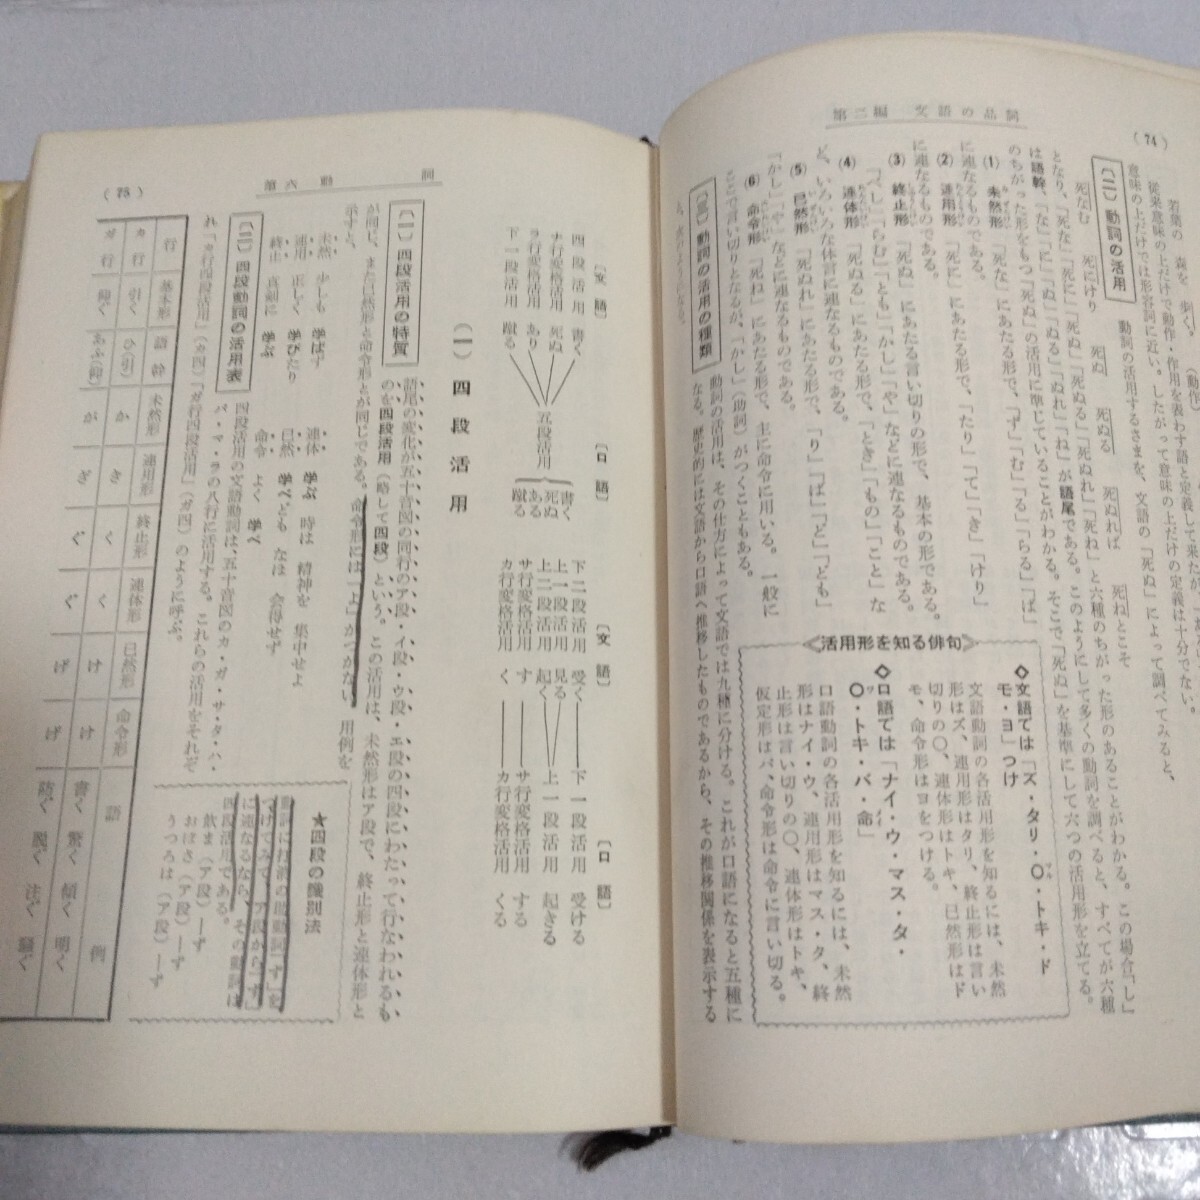 第二編 文語の品詞
(74)
〔二〕動詞の活用
動詞の活用するさまを、文語の「死ぬ」によって調べてみると、
死なむ 死にけり 死ぬ 死ぬる 死ぬれば 死ねとこそ
となり、「死な」「死に」「死ぬ」「死ぬる」「死ぬれ」「死ね」と六種のちがった形のあることがわかる。この場合「し」
は語幹、「な」「に」「ぬ」「ぬる」「ぬれ」「ね」が語尾である。このようにして多くの動詞を調べると、すべてが六種
のちがった形をもつ「死ぬ」の活用に準じていることがわかる。そこで「死ぬ」を基準にして六つの活用形を立てる。
(1) 未然形 「死な」にあたる形で、「ず」「む」「る」「らる」「ば」
に連なるものである。
(2) 連用形 「死に」にあたる形で、「たり」「て」「き」「けり」
に連なるものである。
(3) 終止形 「死ぬ」にあたる言い切りの形で、基本の形である。
「べし」「らむ」「とも」「かし」「や」などに連なるものである。
(4) 連体形 「死ぬる」にあたる形で、「とき」「もの」「こと」な
ど、いろいろな体言に連なるものである。
(5) 已然形 「死ぬれ」にあたる形で、「り」「ば」「ど」「ども」
「かし」「や」などに連なるものである。
(6) 命令形 「死ね」にあたる形で、主に命令に用いる。一般に
ここで言い切りとなるが、「かし」(助詞)がつくこともある。
《活用形を知る俳句》
◇文語では「ズ・タリ・〇・トキ・ド
モ・ヨ」つけ
文語動詞の各活用形を知るには、未然
形はズ、連用形はタリ、終止形は言い
切りの〇、連体形はトキ、已然形はド
モ、命令形はヨをつける。
◇口語では「ナイ・ウ・マス・タ・
〇・トキ・バ・命」
口語動詞の各活用形を知るには、未然
形はナイ・ウ、連用形はマス・タ、終
止形は言い切りの〇、連体形はトキ、
仮定形はバ、命令形は命令に言い切る。
〔三〕動詞の活用の種類
動詞の活用は、その仕方によって文語では九種に分ける。これが口語になると五種に
なる。歴史的には文語から口語へ推移したものであるから、その推移関係を表示する
と、次のようになる。
第六 動詞
(75)
〔文語〕 〔口語〕 〔文語〕 〔口語〕
四段活用 書く
ナ行変格活用 死ぬ
ラ行変格活用 あり
下一段活用 蹴る
五段活用
書く
死ぬ
ある
蹴る
下二段活用 受く 下一段活用 受ける
上一段活用 見る
上二段活用 起く 上一段活用 起きる
サ行変格活用 す サ行変格活用 する
カ行変格活用 く カ行変格活用 くる
(一) 四段活用
〔一〕四段活用の特質
語尾の変化が五十音図の同行のア段・イ段・ウ段・エ段の四段にわたって行なわれるも
のを四段活用(略して四段)という。この活用は、未然形はア段で、終止形と連体形と
が同じ、また已然形と命令形とが同じである。命令形には「よ」がつかない。用例を
示すと、
未然 少しも 学ばず
連用 正しく 学びたり
終止 真剣に 学ぶ
連体 学ぶ 時は 精神を 集中せよ
已然 学べども なほ 会得せず
命令 よく 学べ
〔二〕四段動詞の活用表
四段活用の文語動詞は、五十音図のカ・ガ・サ・タ・ハ・
バ・マ・ラの八行に活用する。これらの活用をそれぞ
れ「カ行四段活用」(カ四)「ガ行四段活用」(ガ四)のように呼ぶ。
★四段の識別法
動詞に打消の助動詞「ず」を
つけてみて、ア段から「ず」
に連なるなら、その動詞は
四段活用である。
飲ま(ア段)―ず
おぼさ(ア段)―ず
うつろは(ア段)―ず
行 基本形 語幹 未然形 連用形 終止形 連体形 已然形 命令形 語例
カ行 引く ひ(引) か き く く け け 書く 驚く 傾く 明く
ガ行 仰ぐ あふ(仰) が ぎ ぐ ぐ げ げ 防ぐ 脱ぐ 注ぐ 騒ぐ